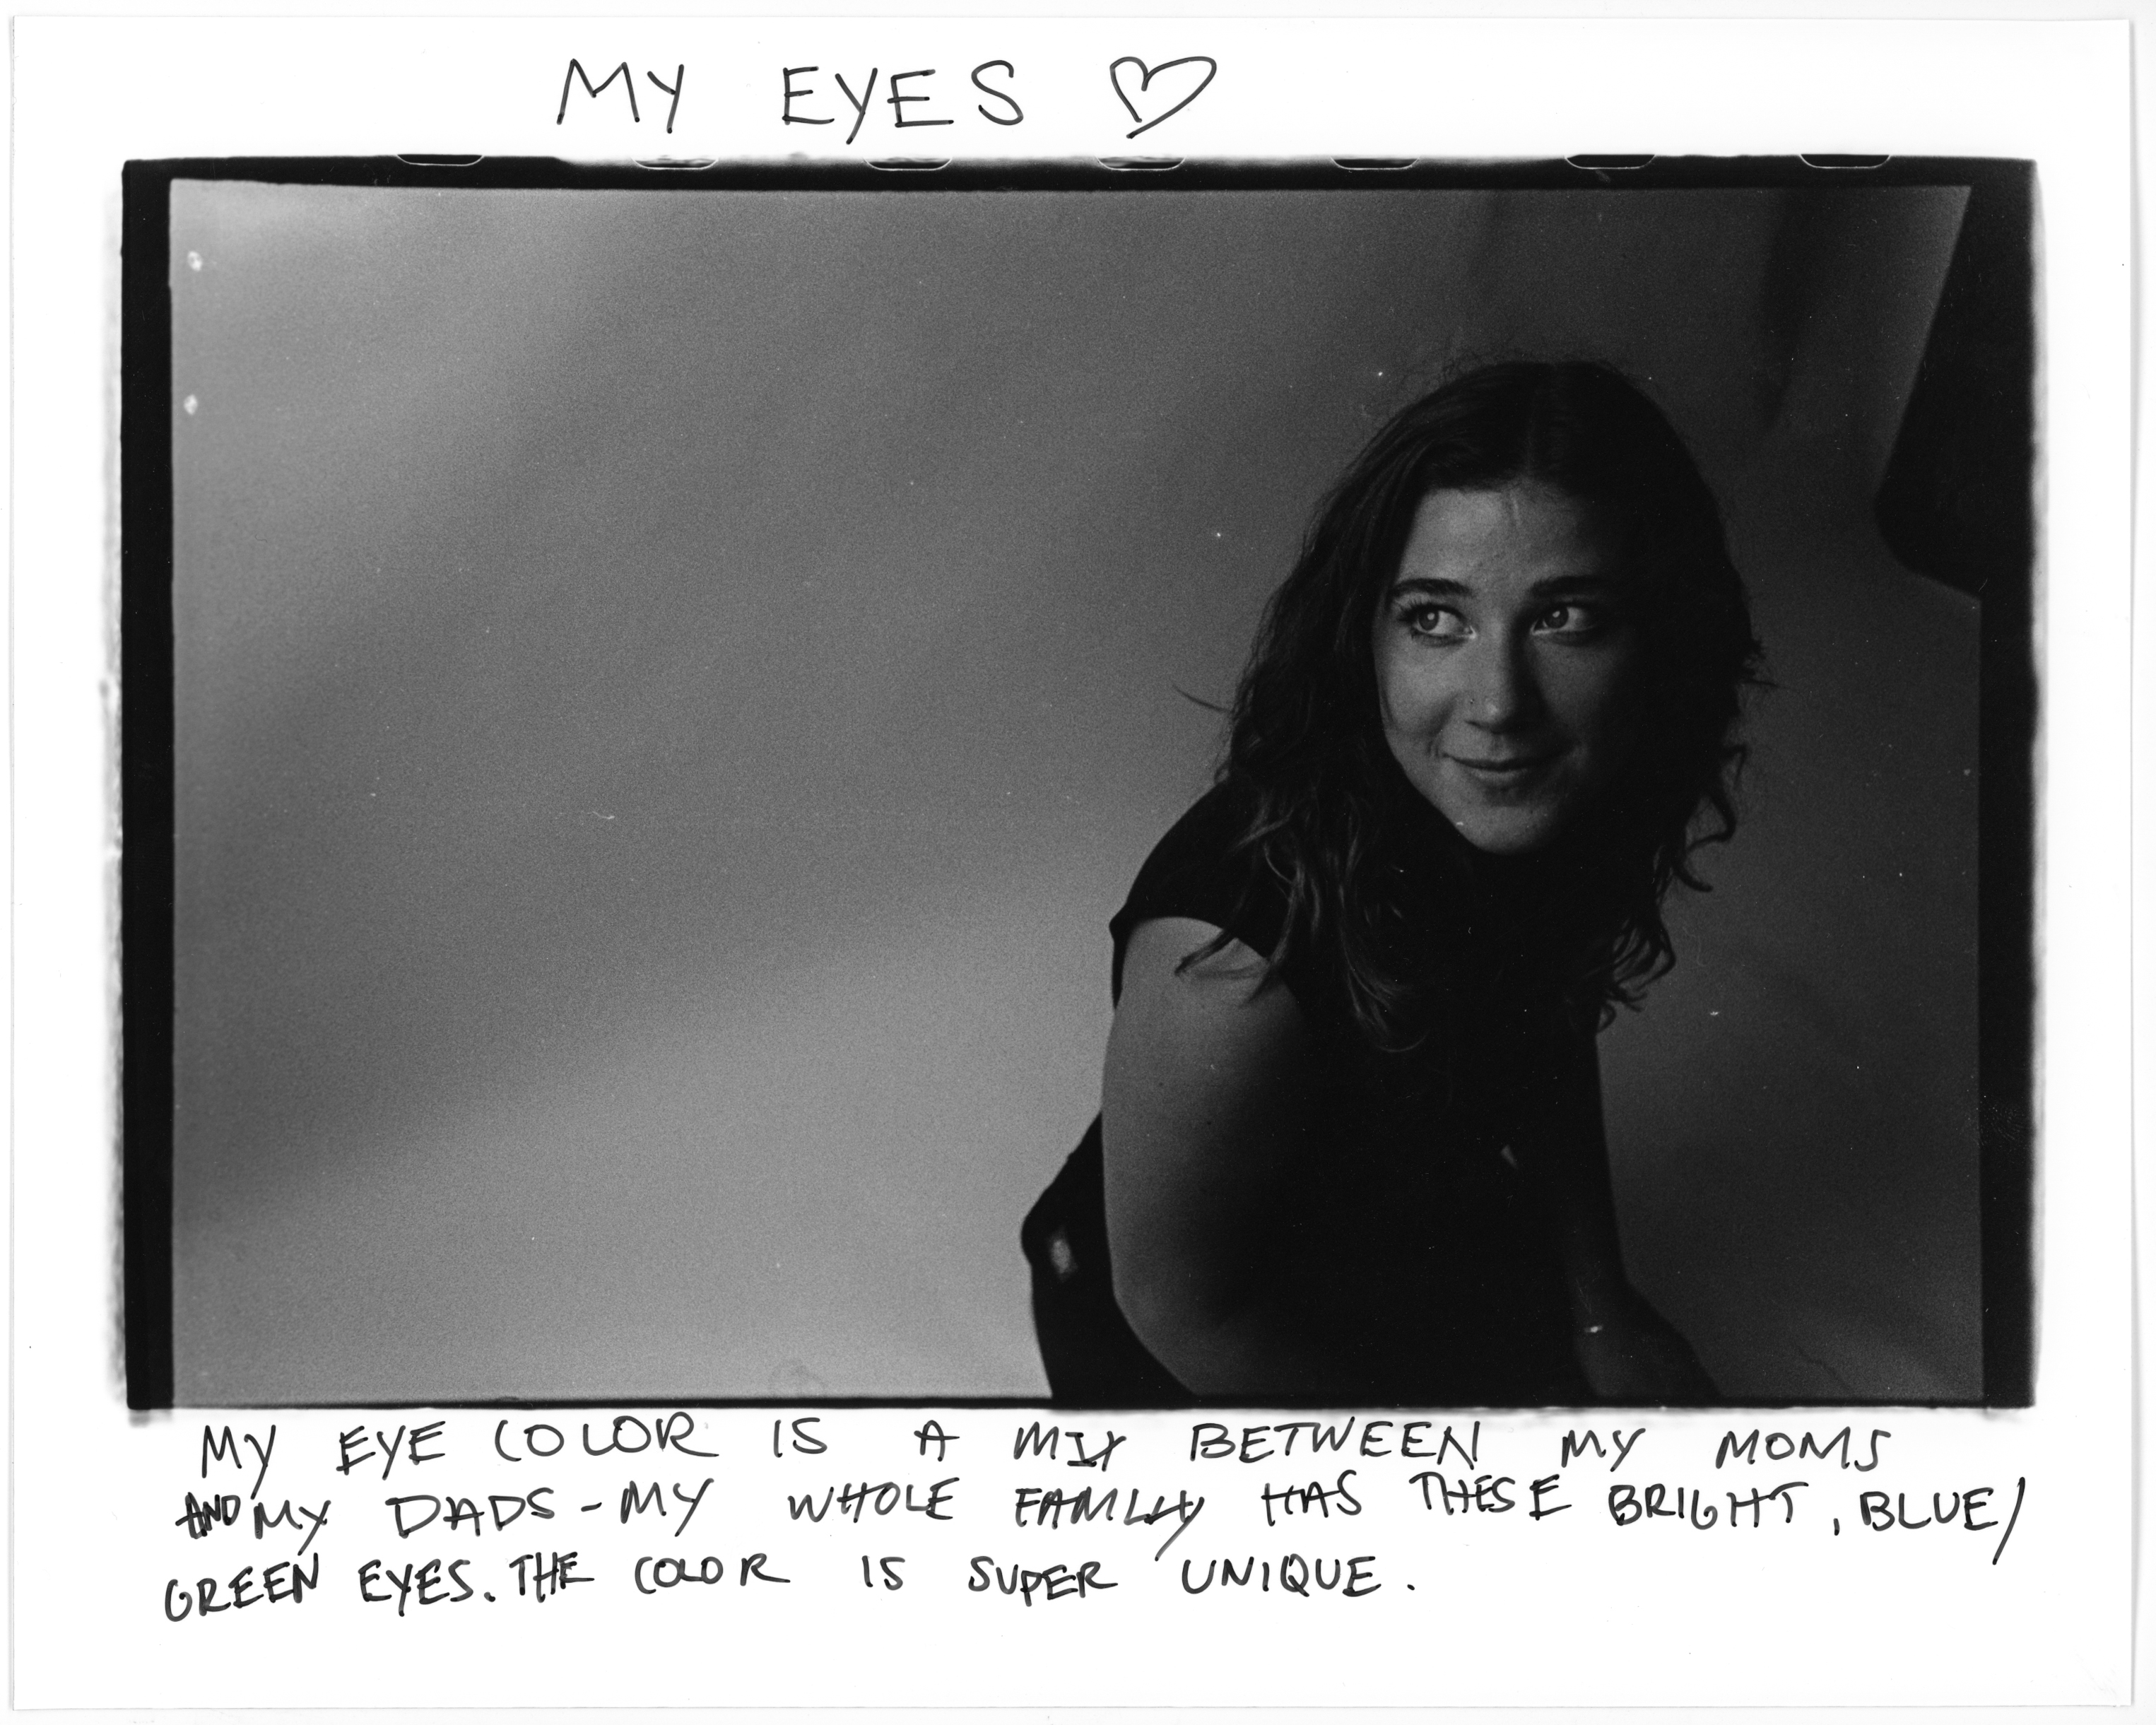 MY EYES ♡
MY EYE COLOR IS A MIX BETWEEN MY MOMS
AND MY DADS - MY WHOLE FAMILY HAS THESE BRIGHT, BLUE/
GREEN EYES. THE COLOR IS SUPER UNIQUE.